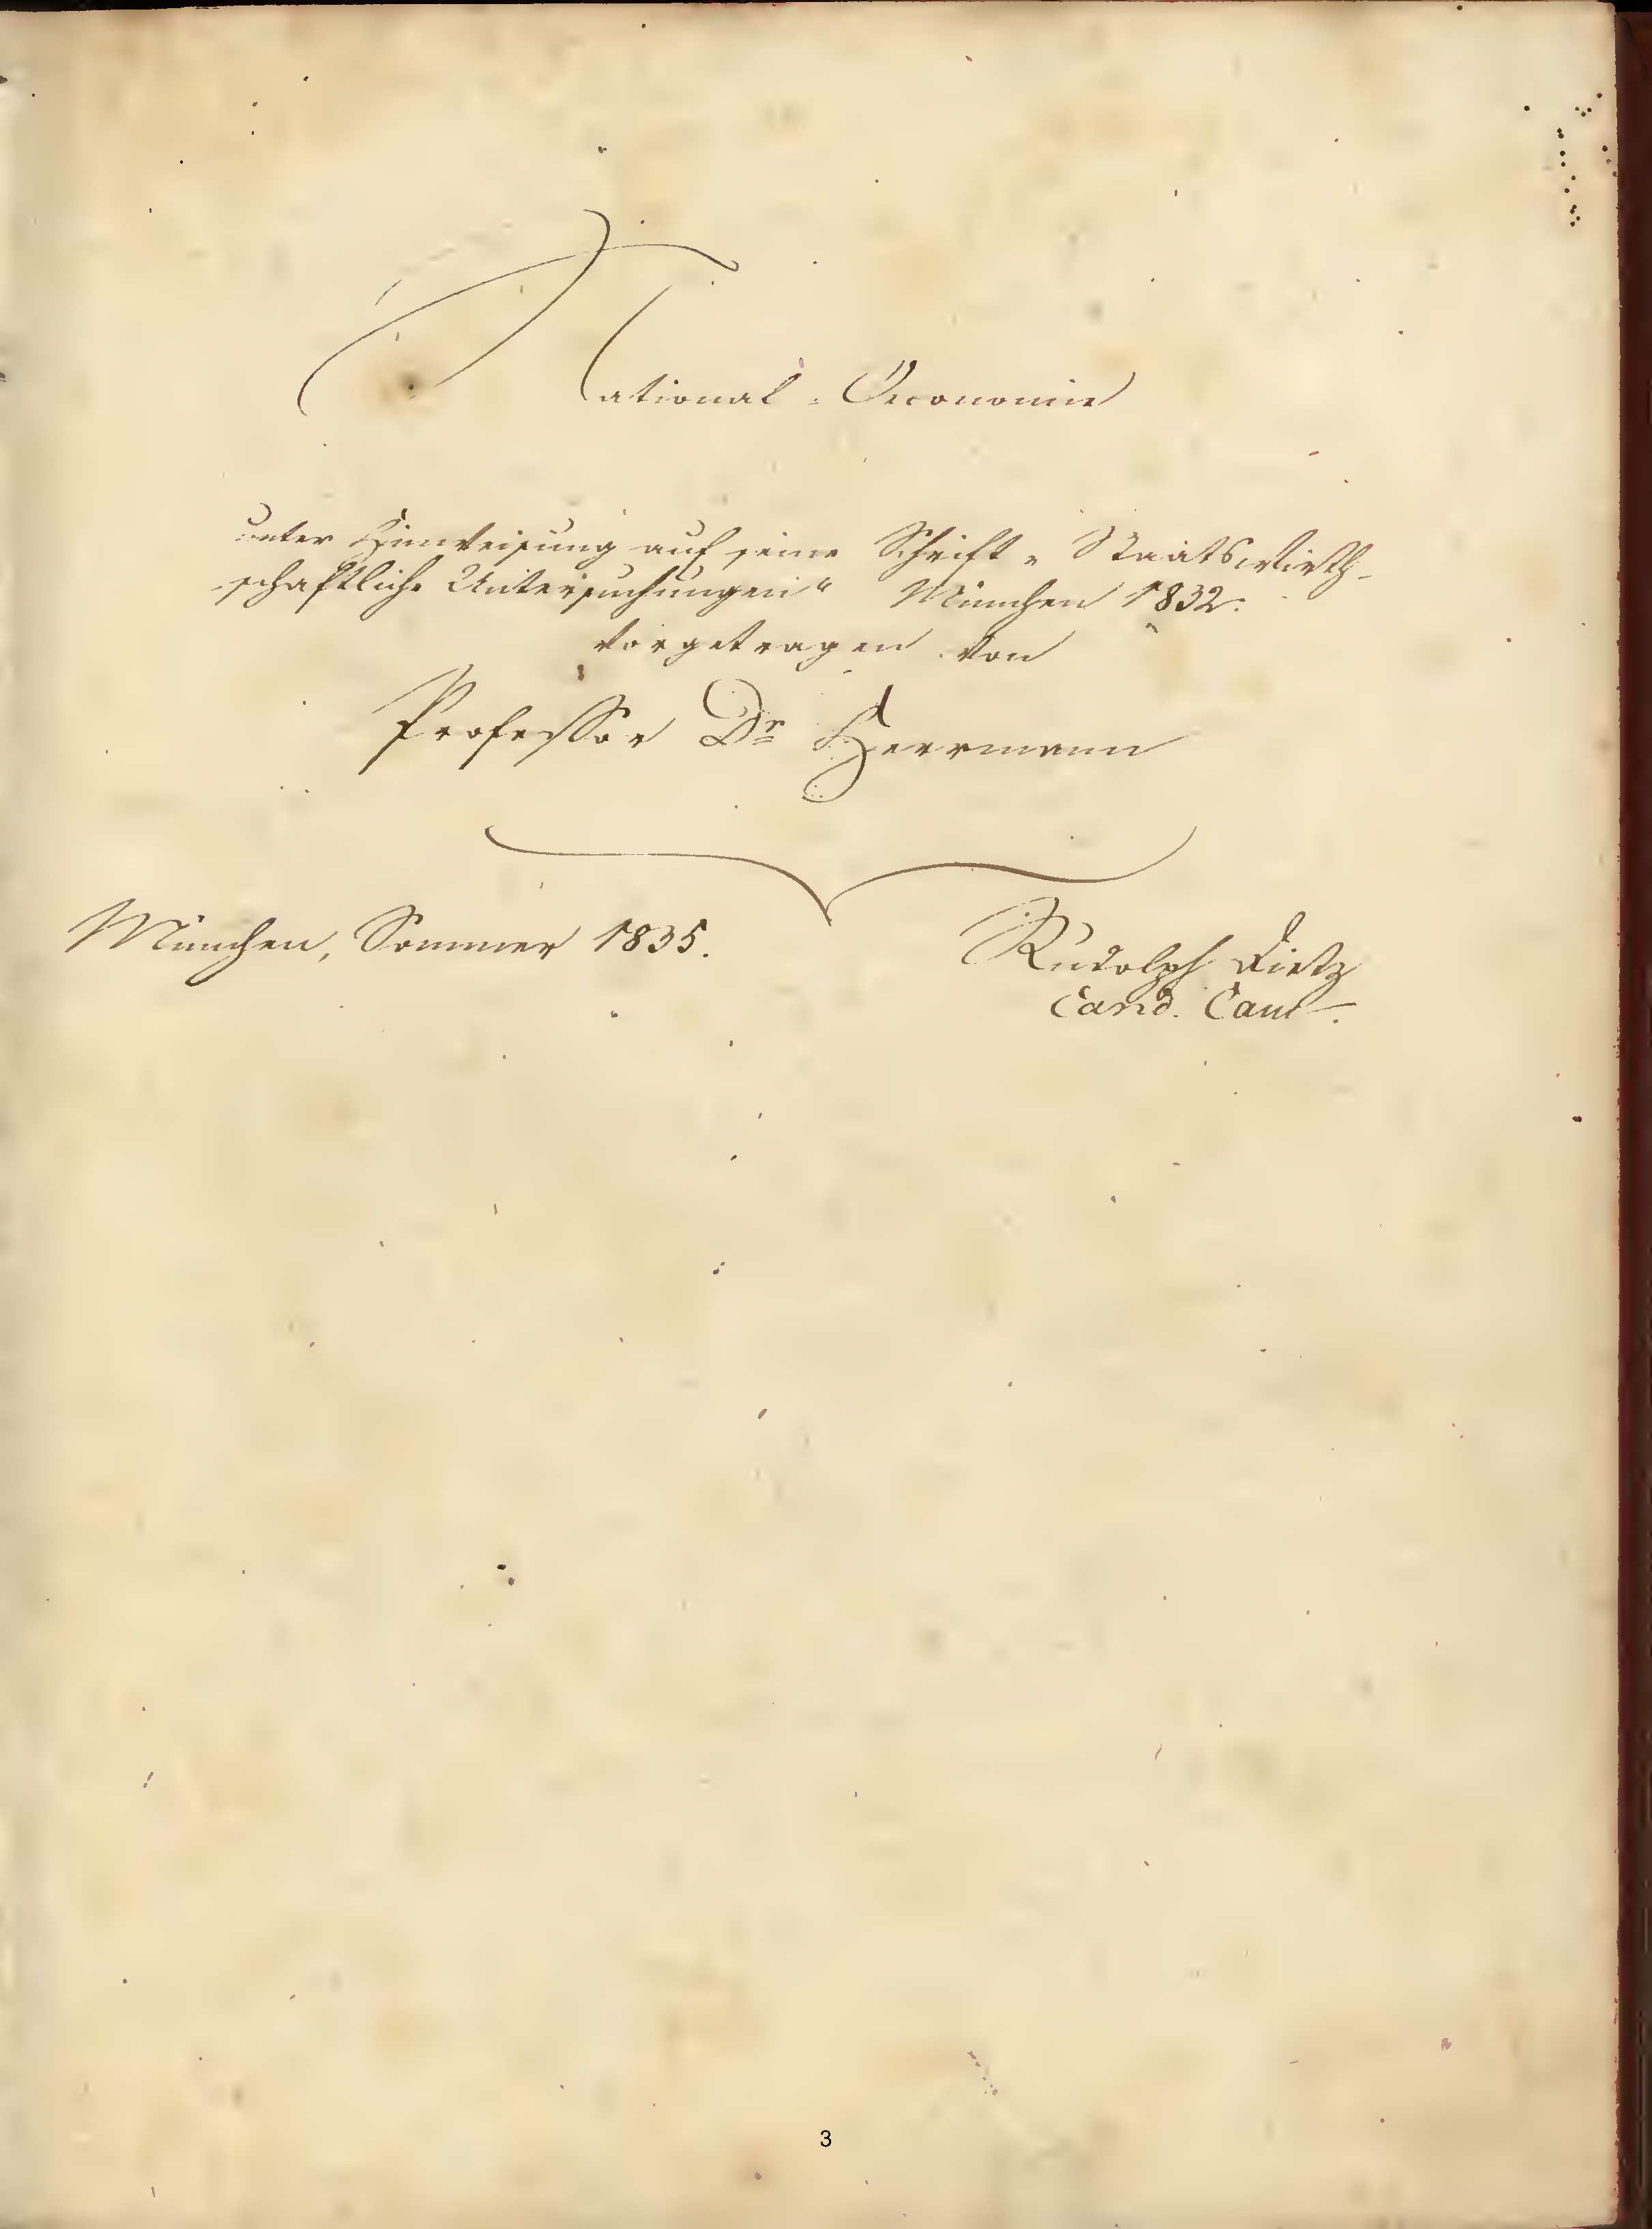 National-Oeconomie
unter Hinweisung auf seine Schrift „Staatswirth-
schaftliche Untersuchungen“ München 1832.
vorgetragen von
Professor Dr Herrmann
München, Sommer 1835.
Rudolph Dietz
Cand. Cam.
3